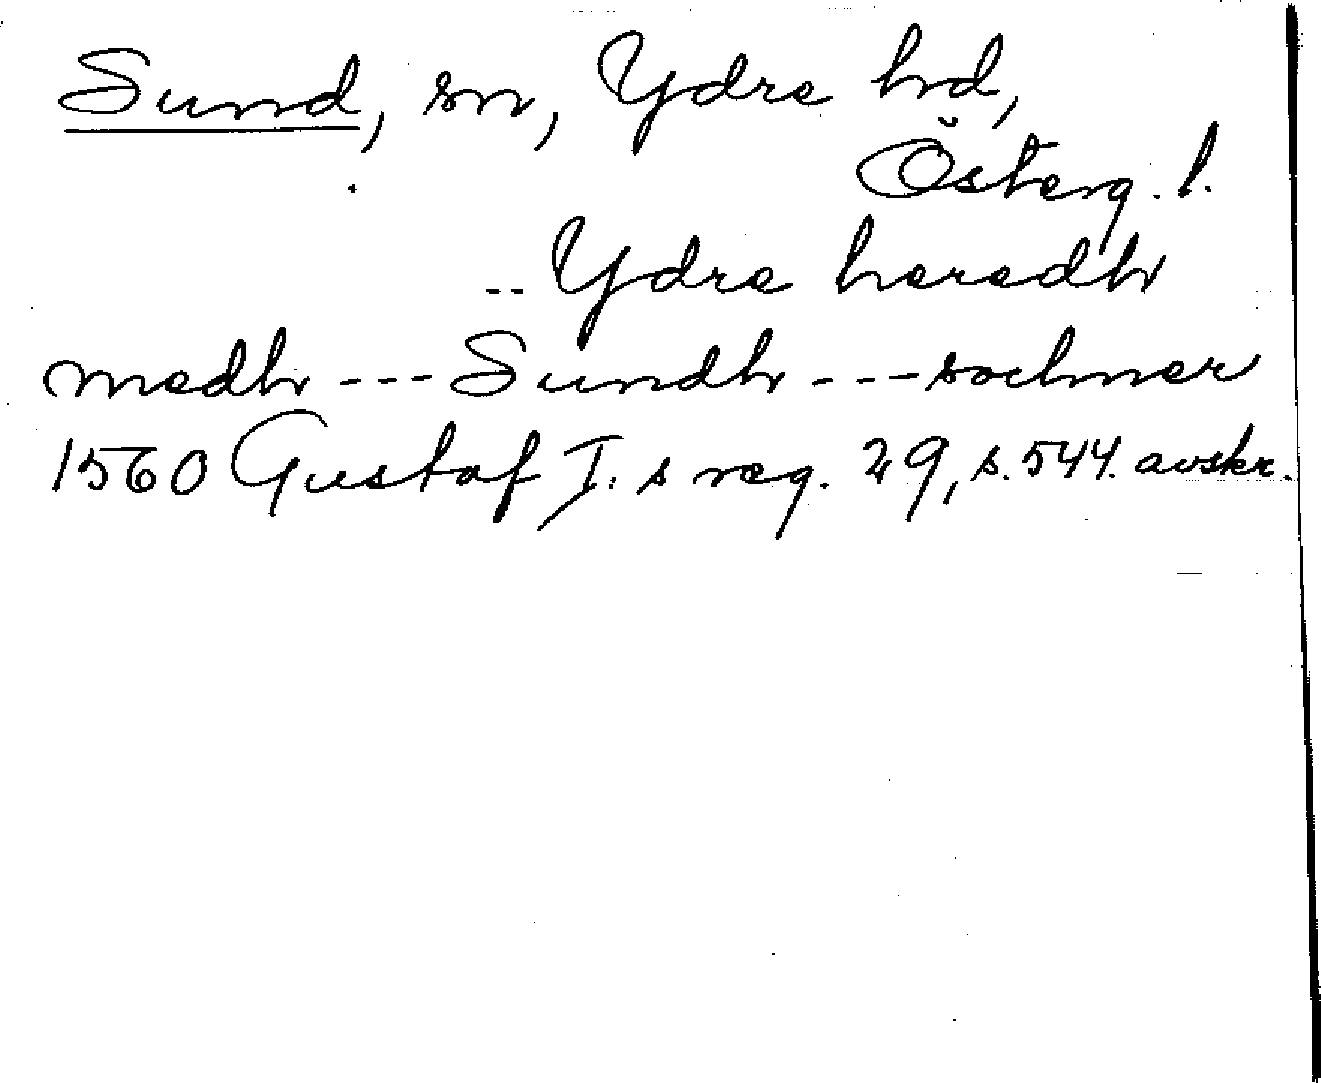 Sund, sn, Ydre hd,
Österg. l.
-- Ydre heredh
medh --- Sundh --- sochner
1560 Gustaf I:s reg. 29, s. 544. avskr.